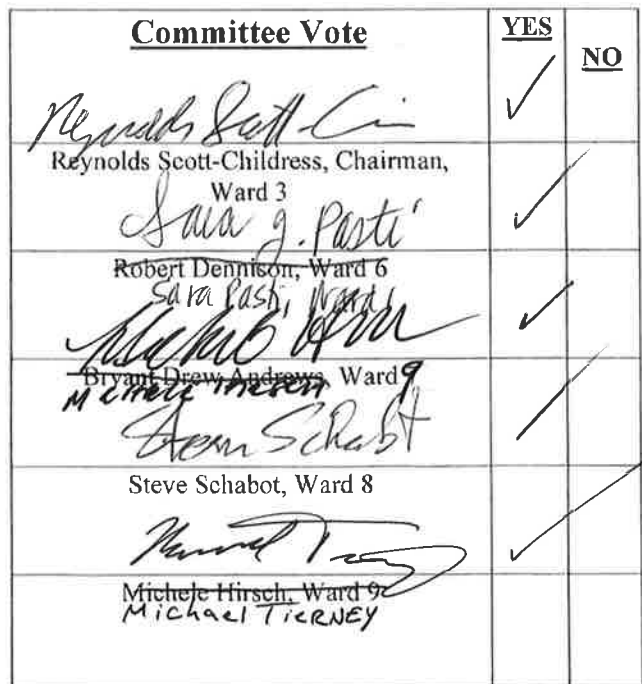 Committee Vote
YES
NO
Reynolds Scott-
Reynolds Scott-Childress, Chairman,
Ward 3
Sara J. Pasti
Robert Dennison, Ward 6
Sara Pasti, Ward 1
Bryant Drew Andrews, Ward 9
Michele Hirsch
Steven Schabot
Steve Schabot, Ward 8
Michele Hirsch, Ward 9
Michael Tierney